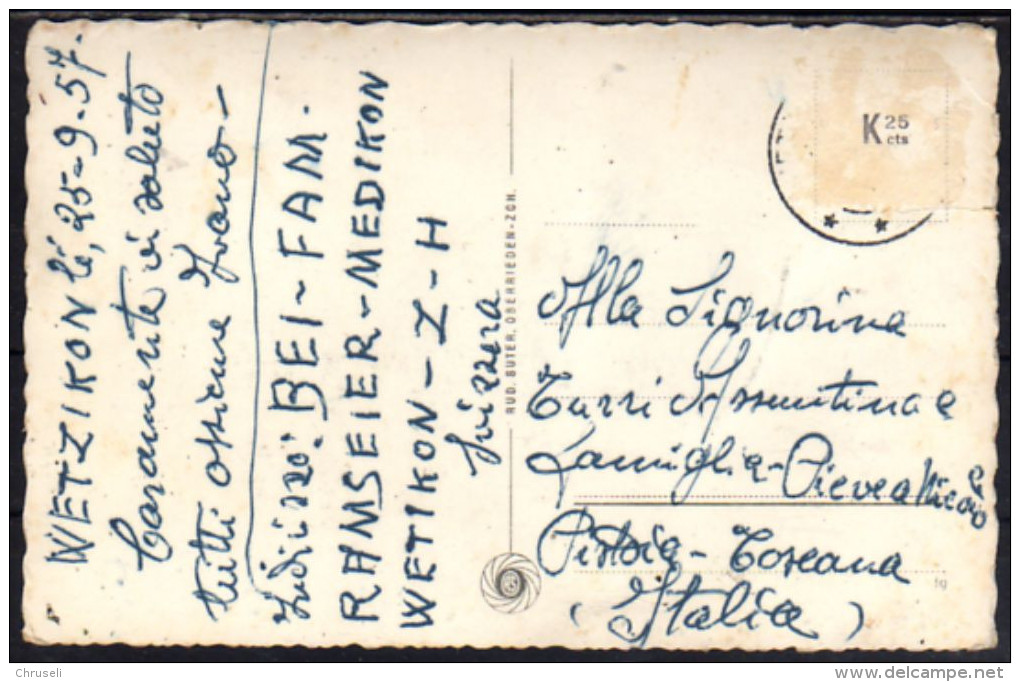 WETZIKON lé, 25-9-57.
Caramente vi saluto
tutti assieme Ivano-
Indirizzo: BEI-FAM.
RAMSEIER-MEDIKON
WETIKON-Z-H
Svizzera
RUD. SUTER, OBERRIEDEN-ZCH.
K 25
cts
Alla Signorina
Turri Assuntina e
Famiglia- Pieve a Nievole
Pistoia- Toscana
(Italia)
Chruseli
www.delcampe.net